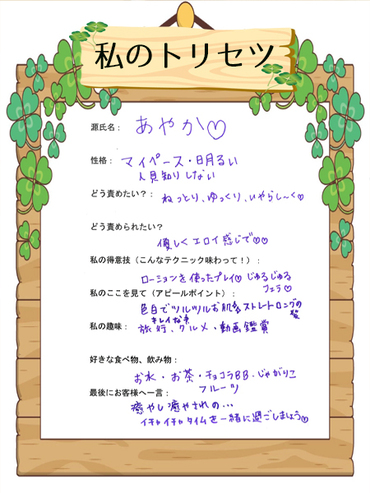 私のトリセツ
源氏名： あやか♡
性格： マイペース・明るい
人見知りしない
どう責めたい？： ねっとり、ゆっくり、いやらし〜く♡
どう責められたい？：
優しくエロイ感じで♡♡
私の得意技（こんなテクニック味わって！）：
ローションを使ったプレイ♡じゅるじゅる
フェラ♡
私のここを見て（アピールポイント）：
色白でツルツルお肌&ストレートロングの
キレイな手 髪
私の趣味： 旅行、グルメ、動画鑑賞
好きな食べ物、飲み物：
お水・お茶・チョコラBB、じゃがりこ
フルーツ
最後にお客様へ一言：
癒やし癒やされの...
イチャイチャタイムを一緒に過ごしましょう♡